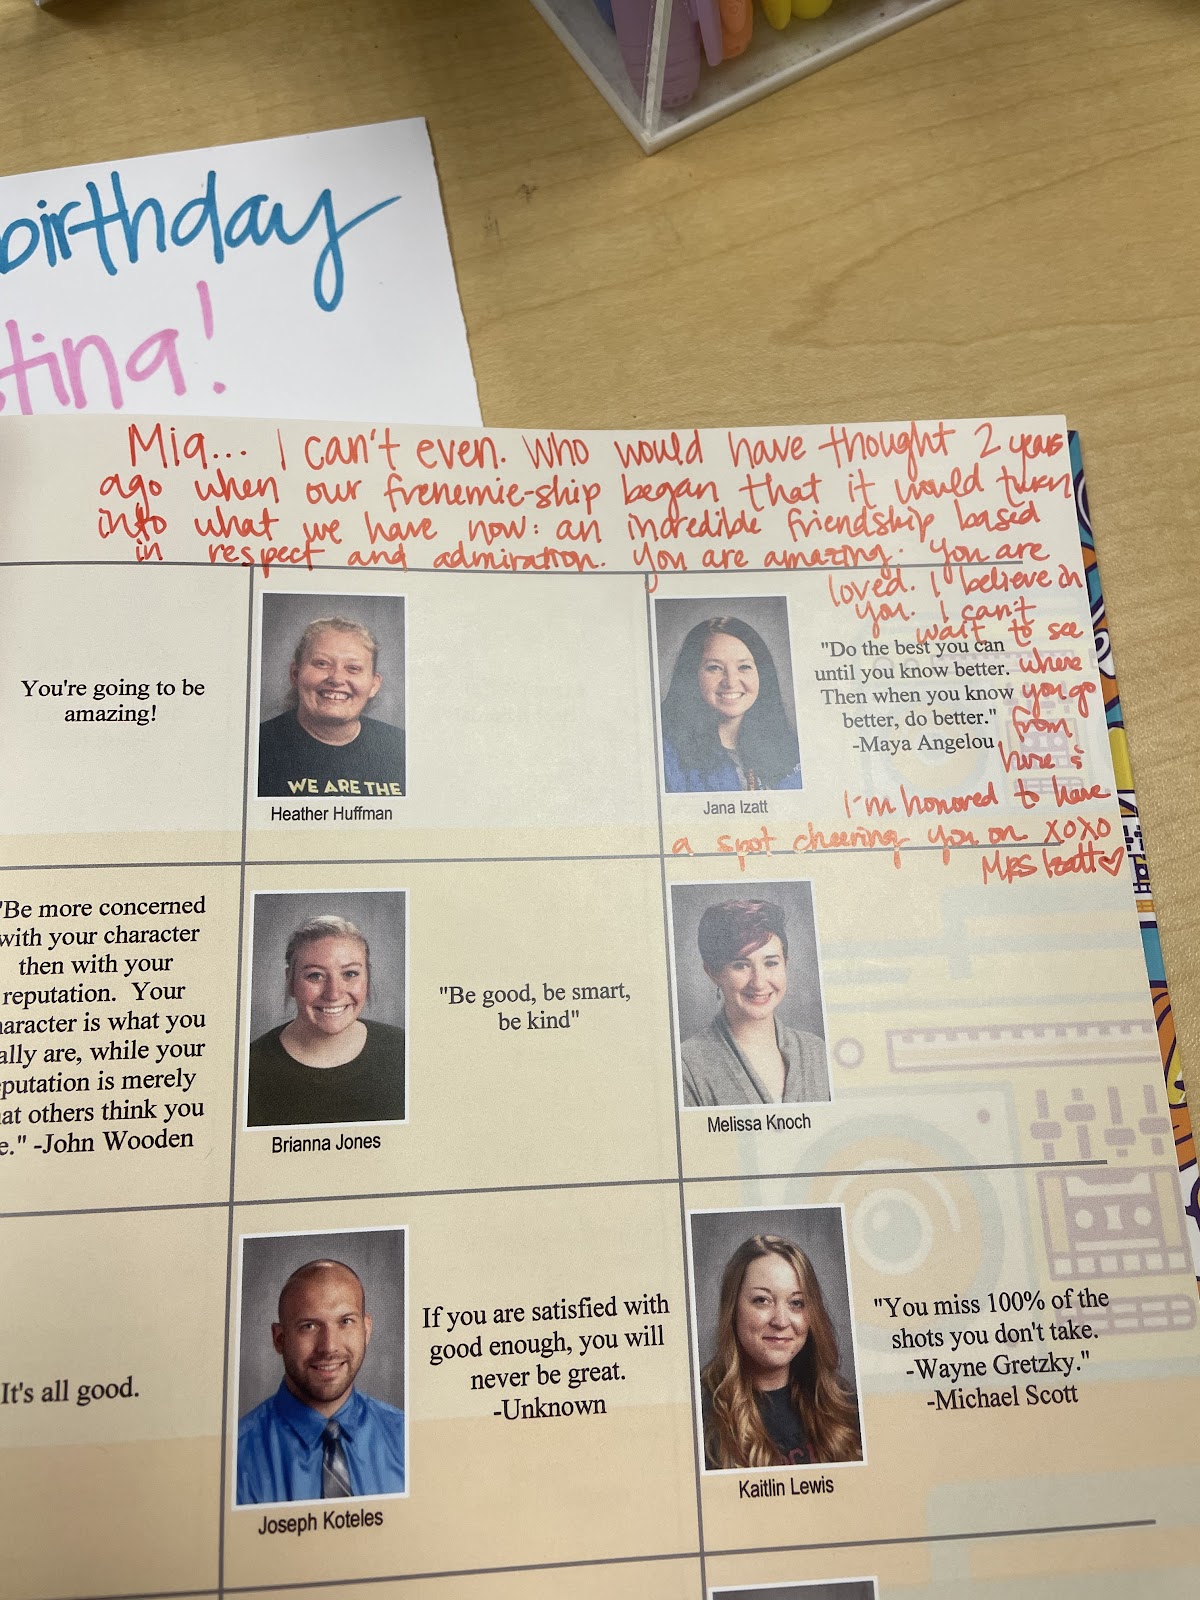 birthday
stina!
Mia... I can't even. Who would have thought 2 years
ago when our frenemie-ship began that it would turn
into what we have now: an incredible friendship based
in respect and admiration. You are amazing. You are
loved. I believe in
you. I can't
wait to see
where
you go
from
here &
I'm honored to have
a spot cheering you on XOXO
Mrs Izatt
You're going to be
amazing!
WE ARE THE
Heather Huffman
Jana Izatt
"Do the best you can
until you know better.
Then when you know
better, do better."
-Maya Angelou
"Be more concerned
with your character
then with your
reputation. Your
haracter is what you
ally are, while your
putation is merely
hat others think you
e." -John Wooden
Brianna Jones
"Be good, be smart,
be kind"
Melissa Knoch
It's all good.
Joseph Koteles
If you are satisfied with
good enough, you will
never be great.
-Unknown
Kaitlin Lewis
"You miss 100% of the
shots you don't take.
-Wayne Gretzky."
-Michael Scott